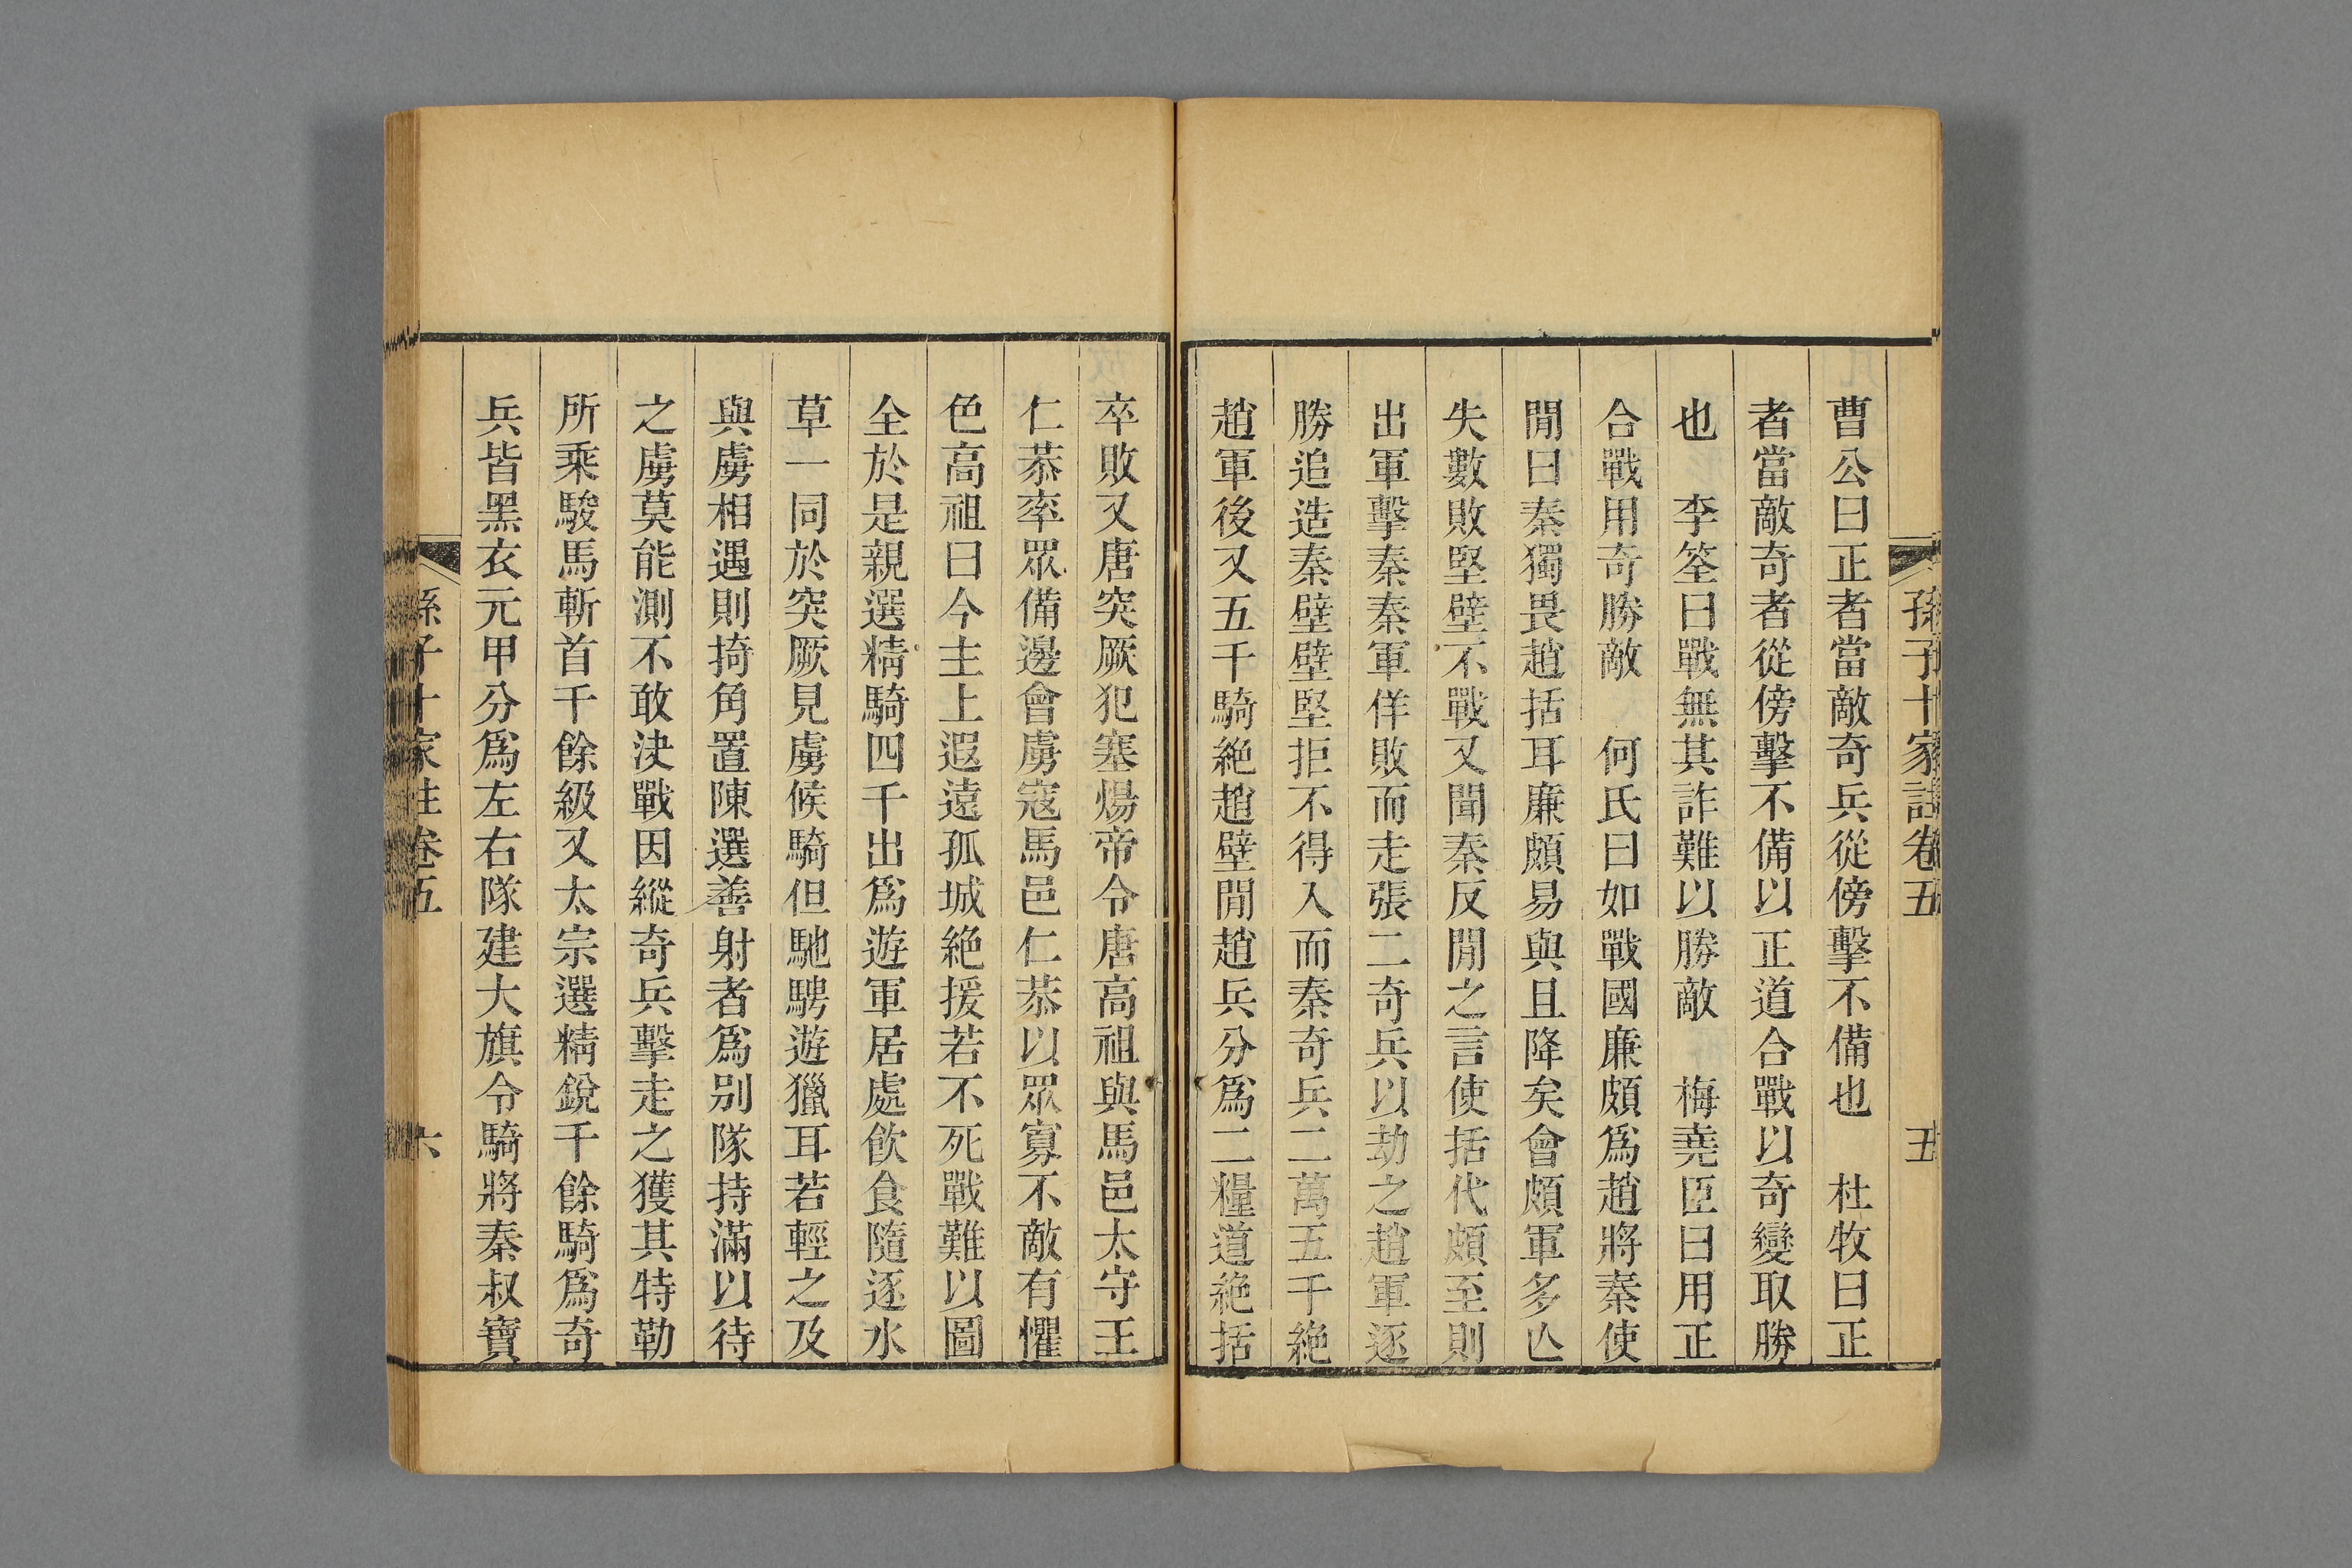 孫子十家註卷五 五
曹公曰正者當敵奇兵從傍擊不備也 杜牧曰正
者當敵奇者從傍擊不備以正道合戰以奇變取勝
也 李筌曰戰無其詐難以勝敵 梅堯臣曰用正
合戰用奇勝敵 何氏曰如戰國廉頗爲趙將秦使
閒曰秦獨畏趙括耳廉頗易與且降矣會頗軍多亾
失數敗堅壁不戰又聞秦反閒之言使括代頗至則
出軍擊秦秦軍佯敗而走張二奇兵以劫之趙軍逐
勝追造秦壁壁堅拒不得入而秦奇兵二萬五千絶
趙軍後又五千騎絶趙壁閒趙兵分爲二糧道絶括
卒敗又唐突厥犯塞煬帝令唐高祖與馬邑太守王
仁恭率眾備邊會虜寇馬邑仁恭以眾寡不敵有懼
色高祖曰今主上遐遠孤城絶援若不死戰難以圖
全於是親選精騎四千出爲遊軍居處飲食隨逐水
草一同於突厥見虜候騎但馳騁遊獵耳若輕之及
與虜相遇則掎角置陳選善射者爲別隊持滿以待
之虜莫能測不敢決戰因縱奇兵擊走之獲其特勒
所乘駿馬斬首千餘級又太宗選精銳千餘騎爲奇
兵皆黑衣元甲分爲左右隊建大旗令騎將秦叔寶
孫子十家註卷五 六